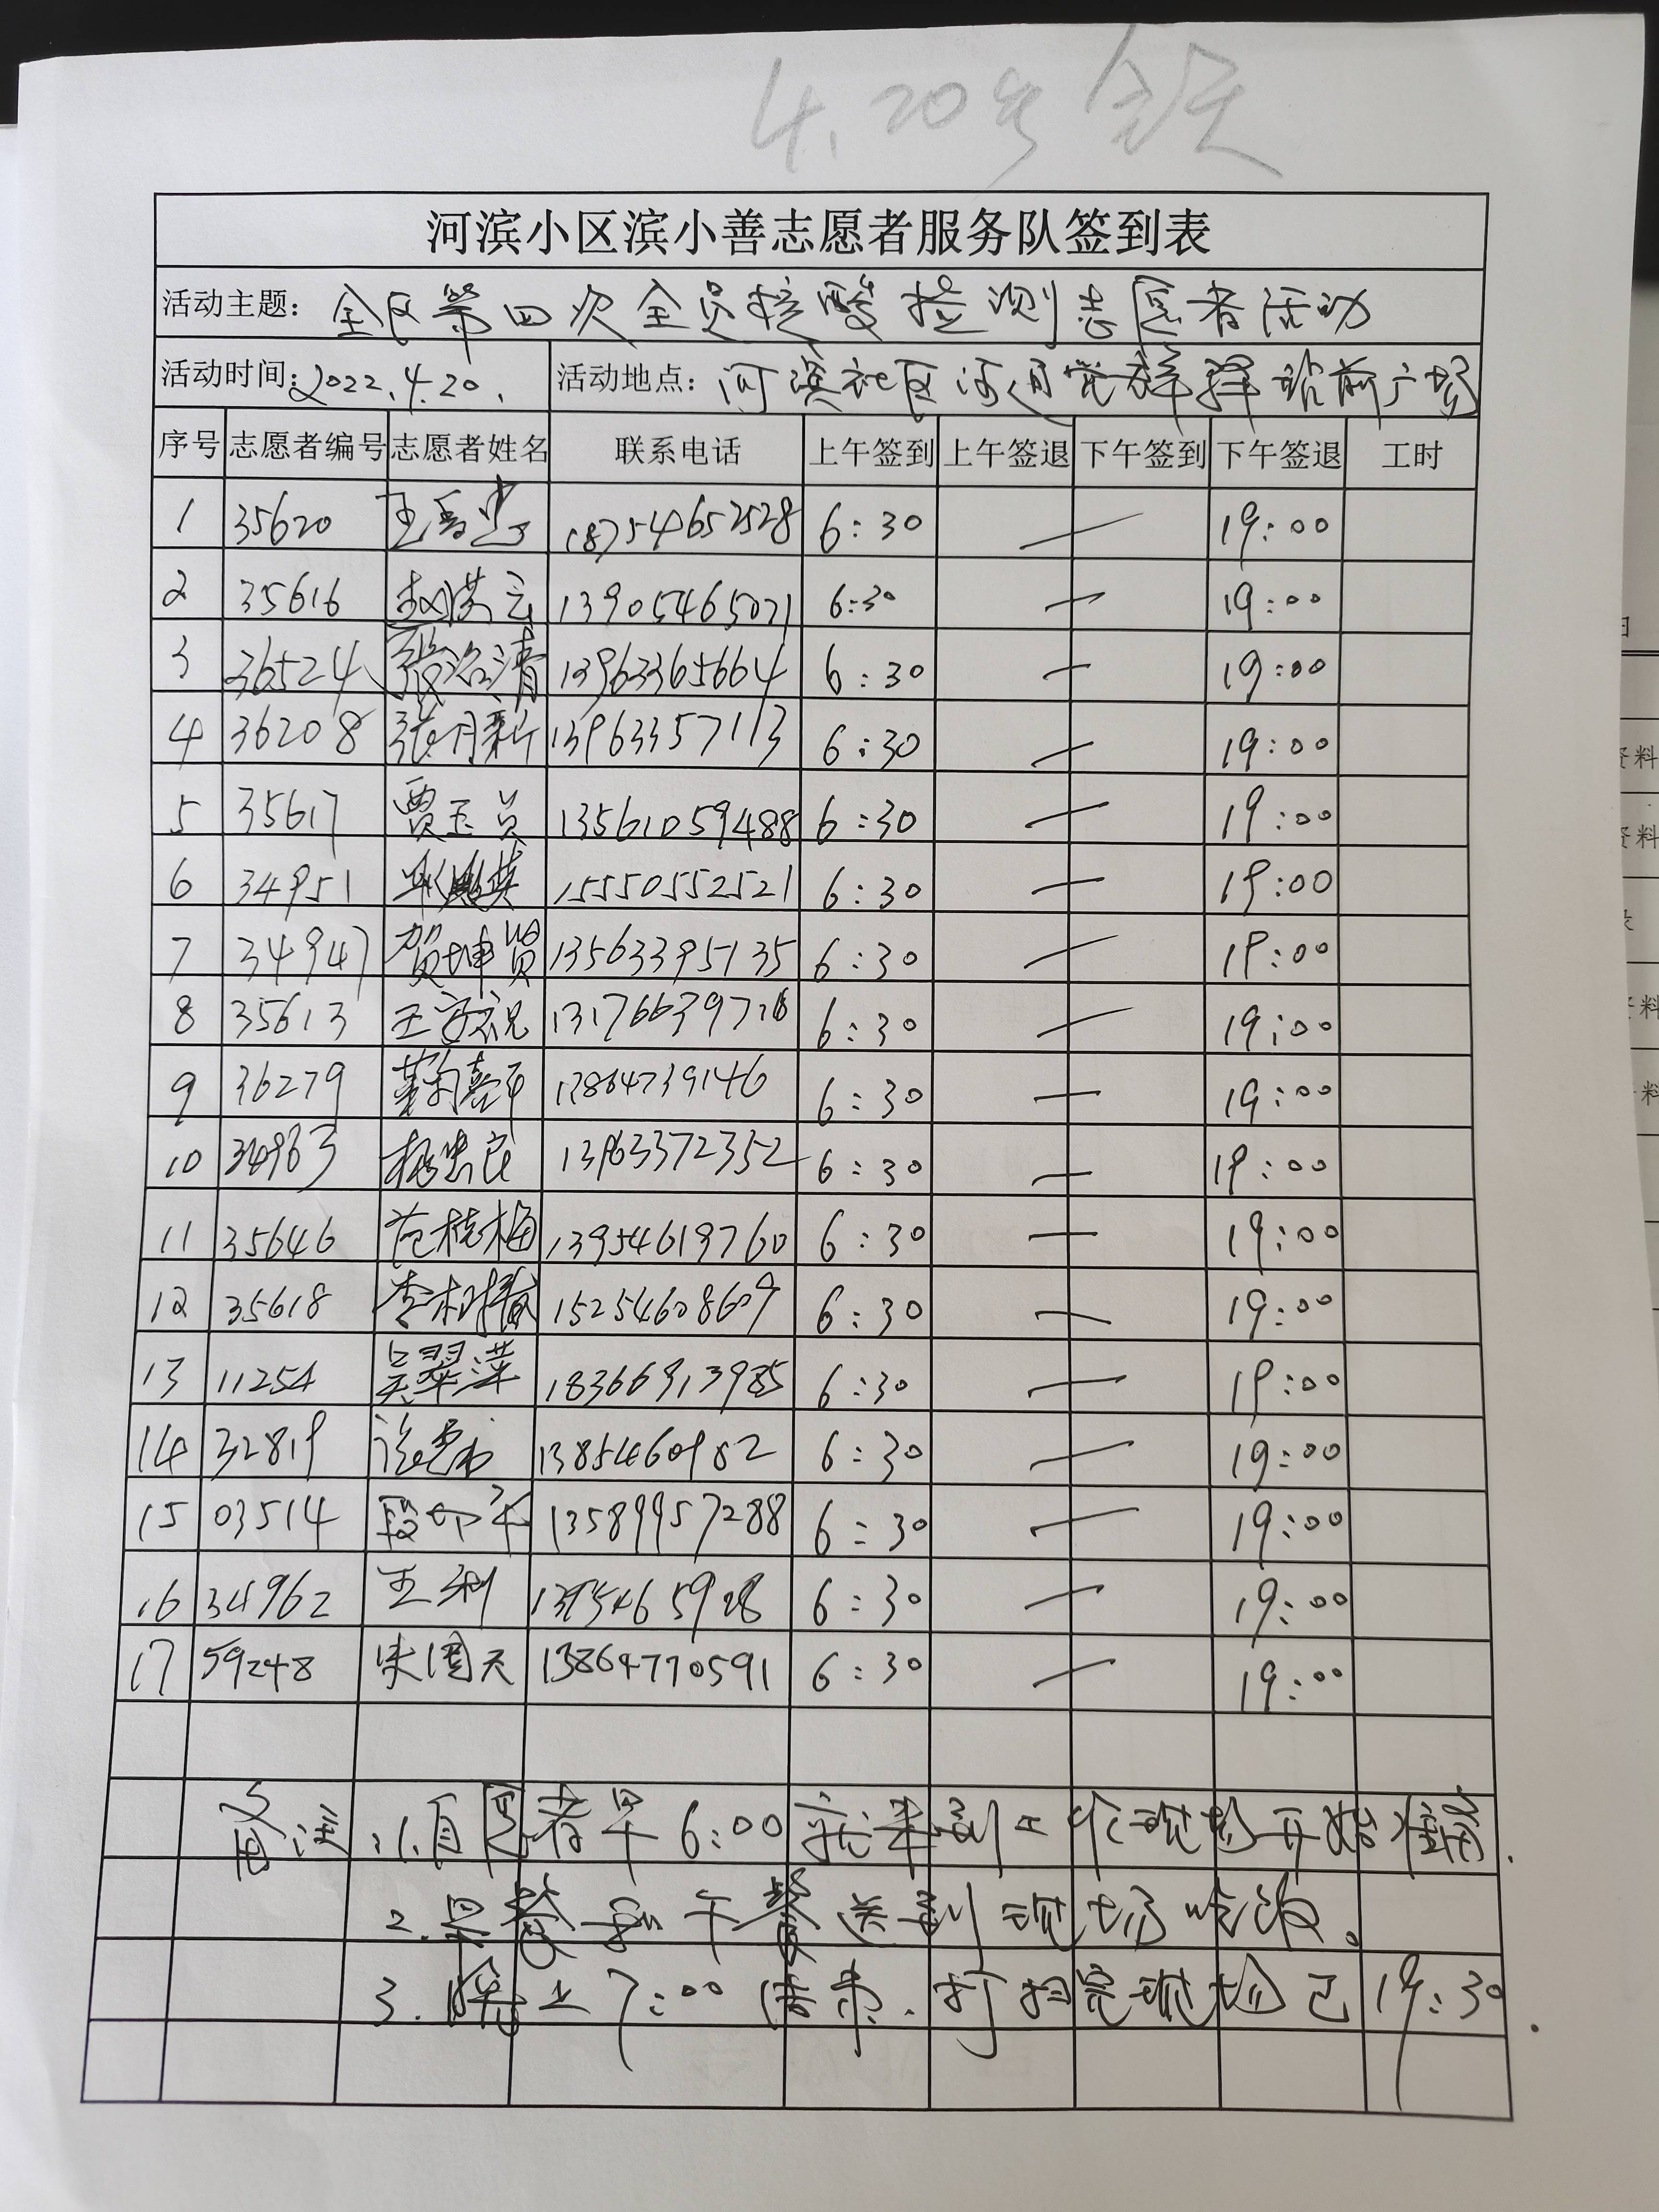 4.20号全天
河滨小区滨小善志愿者服务队签到表
活动主题: 全区第四次全员核酸检测志愿者活动
活动时间: 2022.4.20. 活动地点: 河滨社区河通党群驿站前广场
序号 志愿者编号 志愿者姓名 联系电话 上午签到 上午签退 下午签到 下午签退 工时
1 35620 18754652528 6:30 — 19:00
2 35616 赵洪云 13905465071 6:30 — 19:00
3 36524 张洛清 13963365664 6:30 — 19:00
4 36208 张月新 13963357113 6:30 — 19:00
5 35617 贾玉贞 13561059488 6:30 — 19:00
6 34951 15550552521 6:30 — 19:00
7 34947 贺坤贤 13563395135 6:30 — 19:00
8 35613 王安祝 6:30 — 19:00
9 36279 13864739146 6:30 — 19:00
10 34963 杨忠良 13963372352 6:30 — 19:00
11 35646 范桂梅 13954619760 6:30 — 19:00
12 35618 15254608609 6:30 — 19:00
13 11254 吴翠萍 18366913985 6:30 — 19:00
14 32819 1385460982 6:30 — 19:00
15 03514 13589957288 6:30 — 19:00
16 34962 王利 6:30 — 19:00
17 59248 宋国天 13864770591 6:30 — 19:00
备注:1.自愿者早6:00就来到工作现场开始准备.
2.早餐和午餐送到现场吃饭。
3.晚上7:00结束.打扫完现场已19:30.
资料
资料